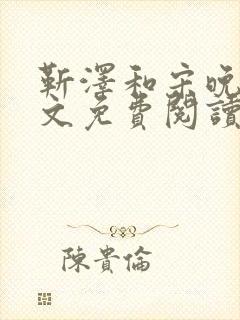 靳澤和宋晚
文免費閱讀
陳貴倫